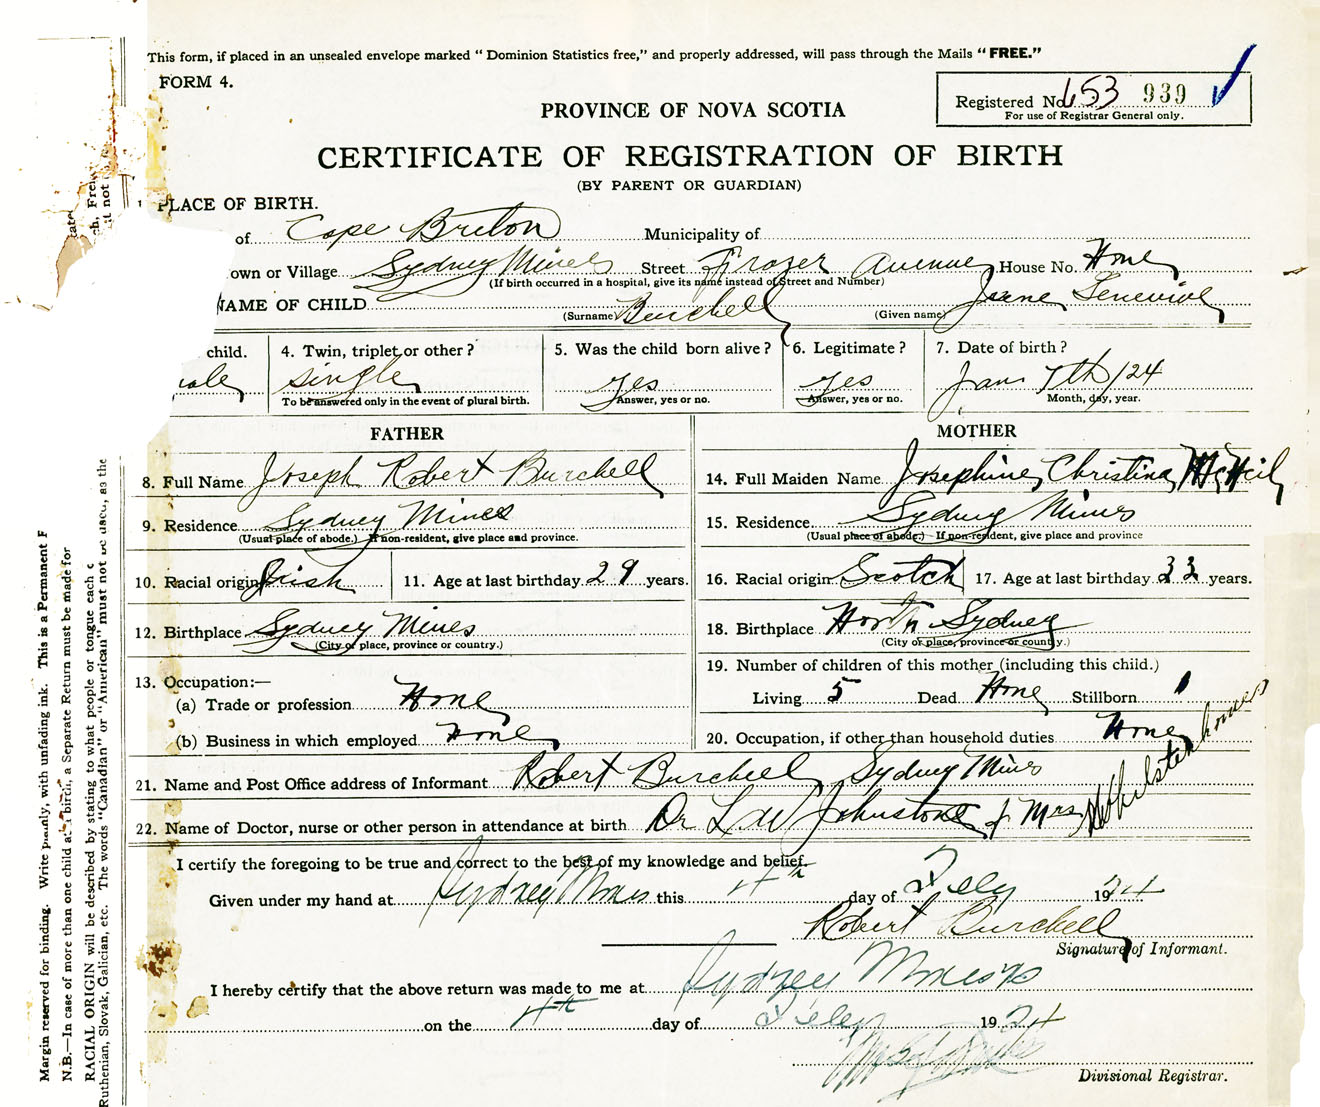 This form, if placed in an unsealed envelope marked "Dominion Statistics free," and properly addressed, will pass through the Mails "FREE."
FORM 4.
Registered No. 653 939
For use of Registrar General only.
PROVINCE OF NOVA SCOTIA
CERTIFICATE OF REGISTRATION OF BIRTH
(BY PARENT OR GUARDIAN)
PLACE OF BIRTH.
of Cape Breton Municipality of
own or Village Sydney Mines Street Frazer Avenue House No. None
(If birth occurred in a hospital, give its name instead of Street and Number)
NAME OF CHILD Burchell
(Surname) (Given name)
child. 4. Twin, triplet or other? 5. Was the child born alive? 6. Legitimate? 7. Date of birth?
single yes yes Jan 7th/24
To be answered only in the event of plural birth. Answer, yes or no. Answer, yes or no. Month, day, year.
FATHER MOTHER
8. Full Name Joseph Robert Burchell 14. Full Maiden Name Josephine Christina McNeil
9. Residence Sydney Mines 15. Residence Sydney Mines
(Usual place of abode.) If non-resident, give place and province. (Usual place of abode.) If non-resident, give place and province
10. Racial origin Irish 11. Age at last birthday 29 years. 16. Racial origin Scotch 17. Age at last birthday 33 years.
12. Birthplace Sydney Mines 18. Birthplace North Sydney
(City or place, province or country.) (City or place, province or country.)
13. Occupation:— 19. Number of children of this mother (including this child.)
(a) Trade or profession None Living 5 Dead None Stillborn 1
(b) Business in which employed None 20. Occupation, if other than household duties None
21. Name and Post Office address of Informant Robert Burchell Sydney Mines
22. Name of Doctor, nurse or other person in attendance at birth Dr L W Johnstone & Mrs
I certify the foregoing to be true and correct to the best of my knowledge and belief.
Given under my hand at Sydney Mines this 4th day of Feby 1924
Robert Burchell
Signature of Informant.
I hereby certify that the above return was made to me at Sydney Mines
on the 4th day of Feby 1924
Divisional Registrar.
Margin reserved for binding. Write plainly, with unfading ink. This is a Permanent
N.B.—In case of more than one child at a birth, a Separate Return must be made for
RACIAL ORIGIN will be described by stating to what people or tongue each
Ruthenian, Slovak, Galician, etc. The words "Canadian" or "American" must not be used, as the